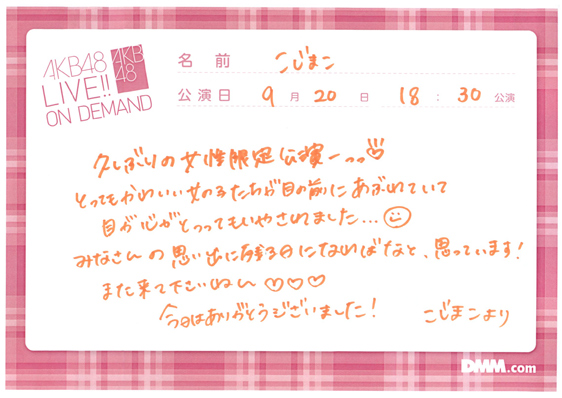 AKB48
LIVE!!
ON DEMAND
AKB
48
名前 こじまこ
公演日 9月20日 18:30公演
久しぶりの女性限定公演ーっっ♡
とってもかわいい女の子たちが目の前にあふれていて
目が心がとってってもいやされました...☺
みなさんの思い出に残る日になればなと、思っています!
また来て下さいねん♡♡♡
今日はありがとうございました!
こじまこより
DMM.com